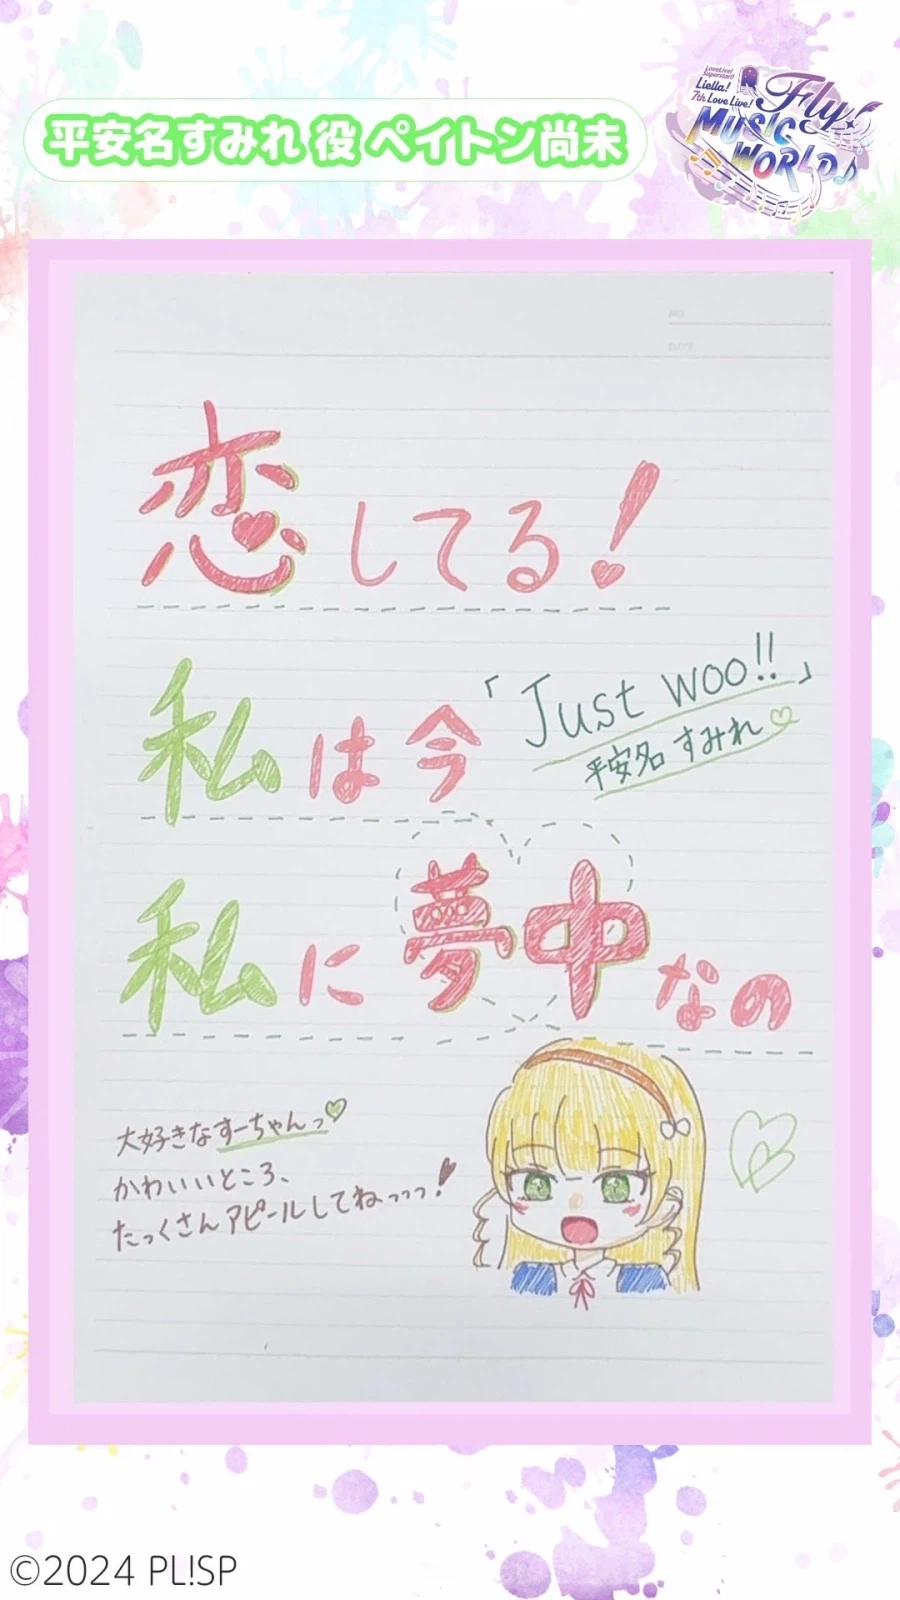 平安名すみれ 役 ペイトン尚未
LoveLive!
Superstar!!
Liella!
7th LoveLive!
Fly!
MUSIC
WORLD
NO.
DATE
恋してる!
私は今
「Just woo!!」
平安名 すみれ
私に夢中なの
大好きなすーちゃんっ
かわいいところ、
たっくさんアピールしてねっっっ!
©2024 PL!SP